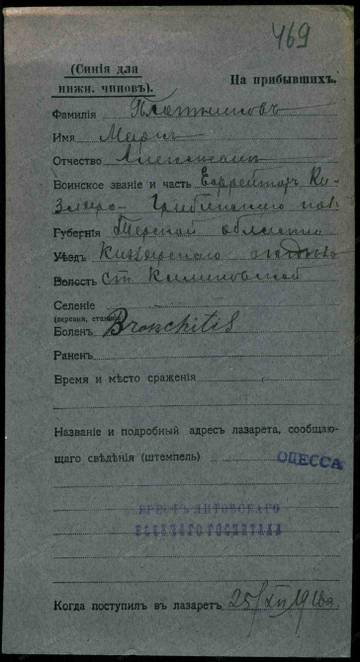 469
(Синія для
нижн. чиновъ).
На прибывшихъ.
Фамилія Плотниковъ
Имя Маркъ
Отчество
Воинское званіе и часть Ефрейторъ Ки-
зляро-Гребенского пол.
Губернія Терской области
Уѣздъ Кизлярского отдѣла
Волость ст. Калиновской
Селеніе
(деревня, станица)
Боленъ Bronchitis
Раненъ
Время и мѣсто сраженія
Названіе и подробный адресъ лазарета, сообщаю-
щаго свѣдѣнія (штемпель)
ОДЕССА
БРЕСТЪ ЛИТОВСКАГО
ВОЕННАГО ГОСПИТАЛЯ
Когда поступилъ въ лазаретъ 25/XII 1916